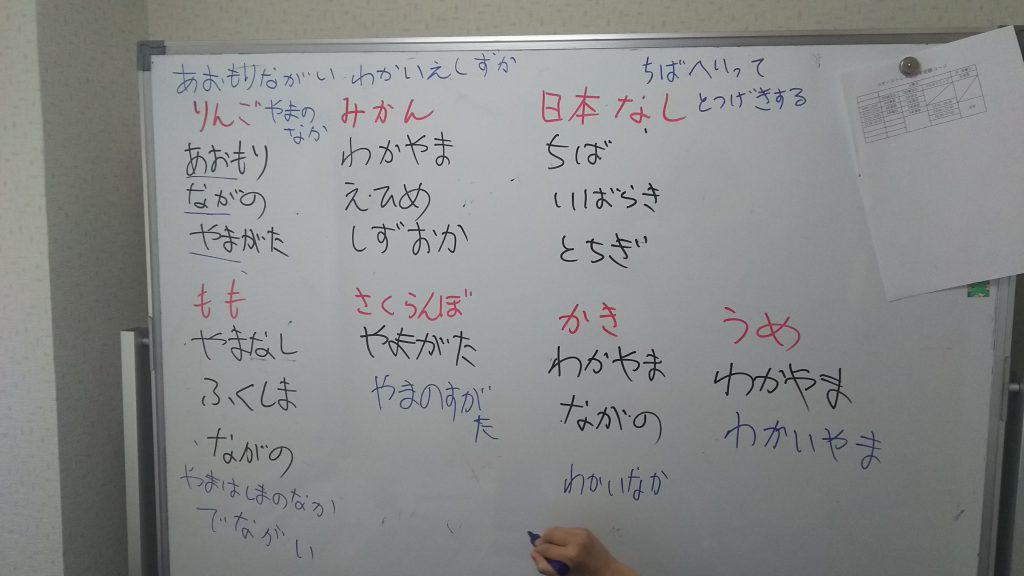 あおもりながい わかいえしずか
りんご
やまの
なか
あおもり
ながの
やまがた
みかん
わかやま
えひめ
しずおか
ちばへいって
とつげきする
日本なし
ちば
いばらき
とちぎ
もも
やまなし
ふくしま
ながの
やまはしまのなか
でながい
さくらんぼ
やまがた
やまのすが
た
かき
わかやま
ながの
わかいなか
うめ
わかやま
わかいやま